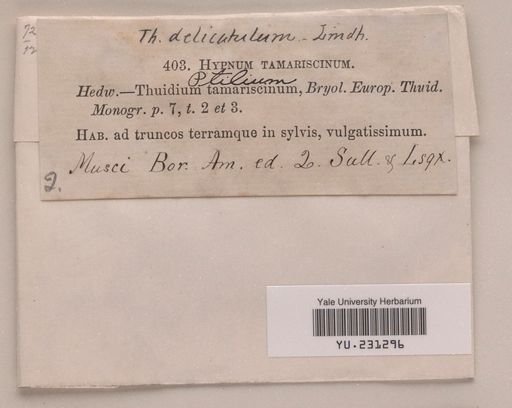 72
12
Th. delicatulum - Lindb.
403. HYPNUM TAMARISCINUM.
Ptilium
Hedw.—Thuidium tamariscinum, Bryol. Europ. Thuid.
Monogr. p. 7, t. 2 et 3.
HAB. ad truncos terramque in sylvis, vulgatissimum.
Musci Bor. Am. ed. 2. Sull. & Lsqx.
2.
Yale University Herbarium
YU.231296